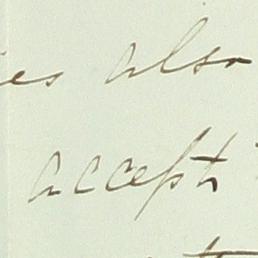 es also
accept